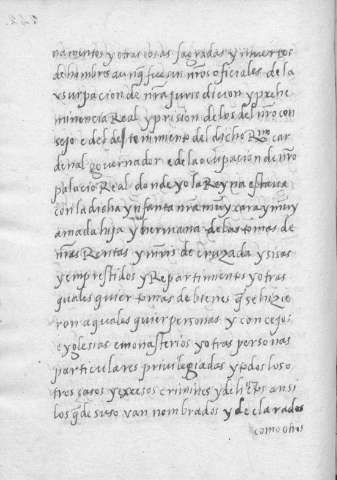 namentos y otras cosas sagradas y muertes
de hombres aunq̃ fuesen nr̃os oficiales de la
vsurpacion de nr̃a jurisdicion y prehe
minencia Real y prision de los del nr̃o con
sejo e del detenimiento del dicho Rmo car
denal governador e de la ocupacion de nr̃o
palacio Real donde yo la Reyna estava
con la dicha ynfanta nr̃a muy cara y muy
amada hija y hermana de las tomas de
nr̃as Rentas y mrs̃ de cruzada y sisas
y emprestidos y Repartimientos y otras
quales quier tomas de bienes q̃ se hizie
ron a quales quier personas y concejos
e yglesias e monasterios y otras personas
particulares previlegiadas y todos los o
tros casos y excesos crimines y delitos ansi
los q̃ de suso van nombrados y declarados
como otros